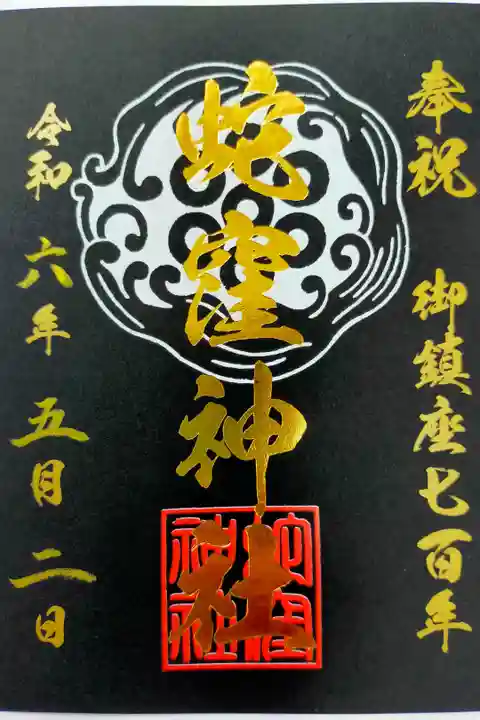 奉祝 御鎮座七百年
蛇窪神社
蛇窪
神社
令和 六年 五月 二日